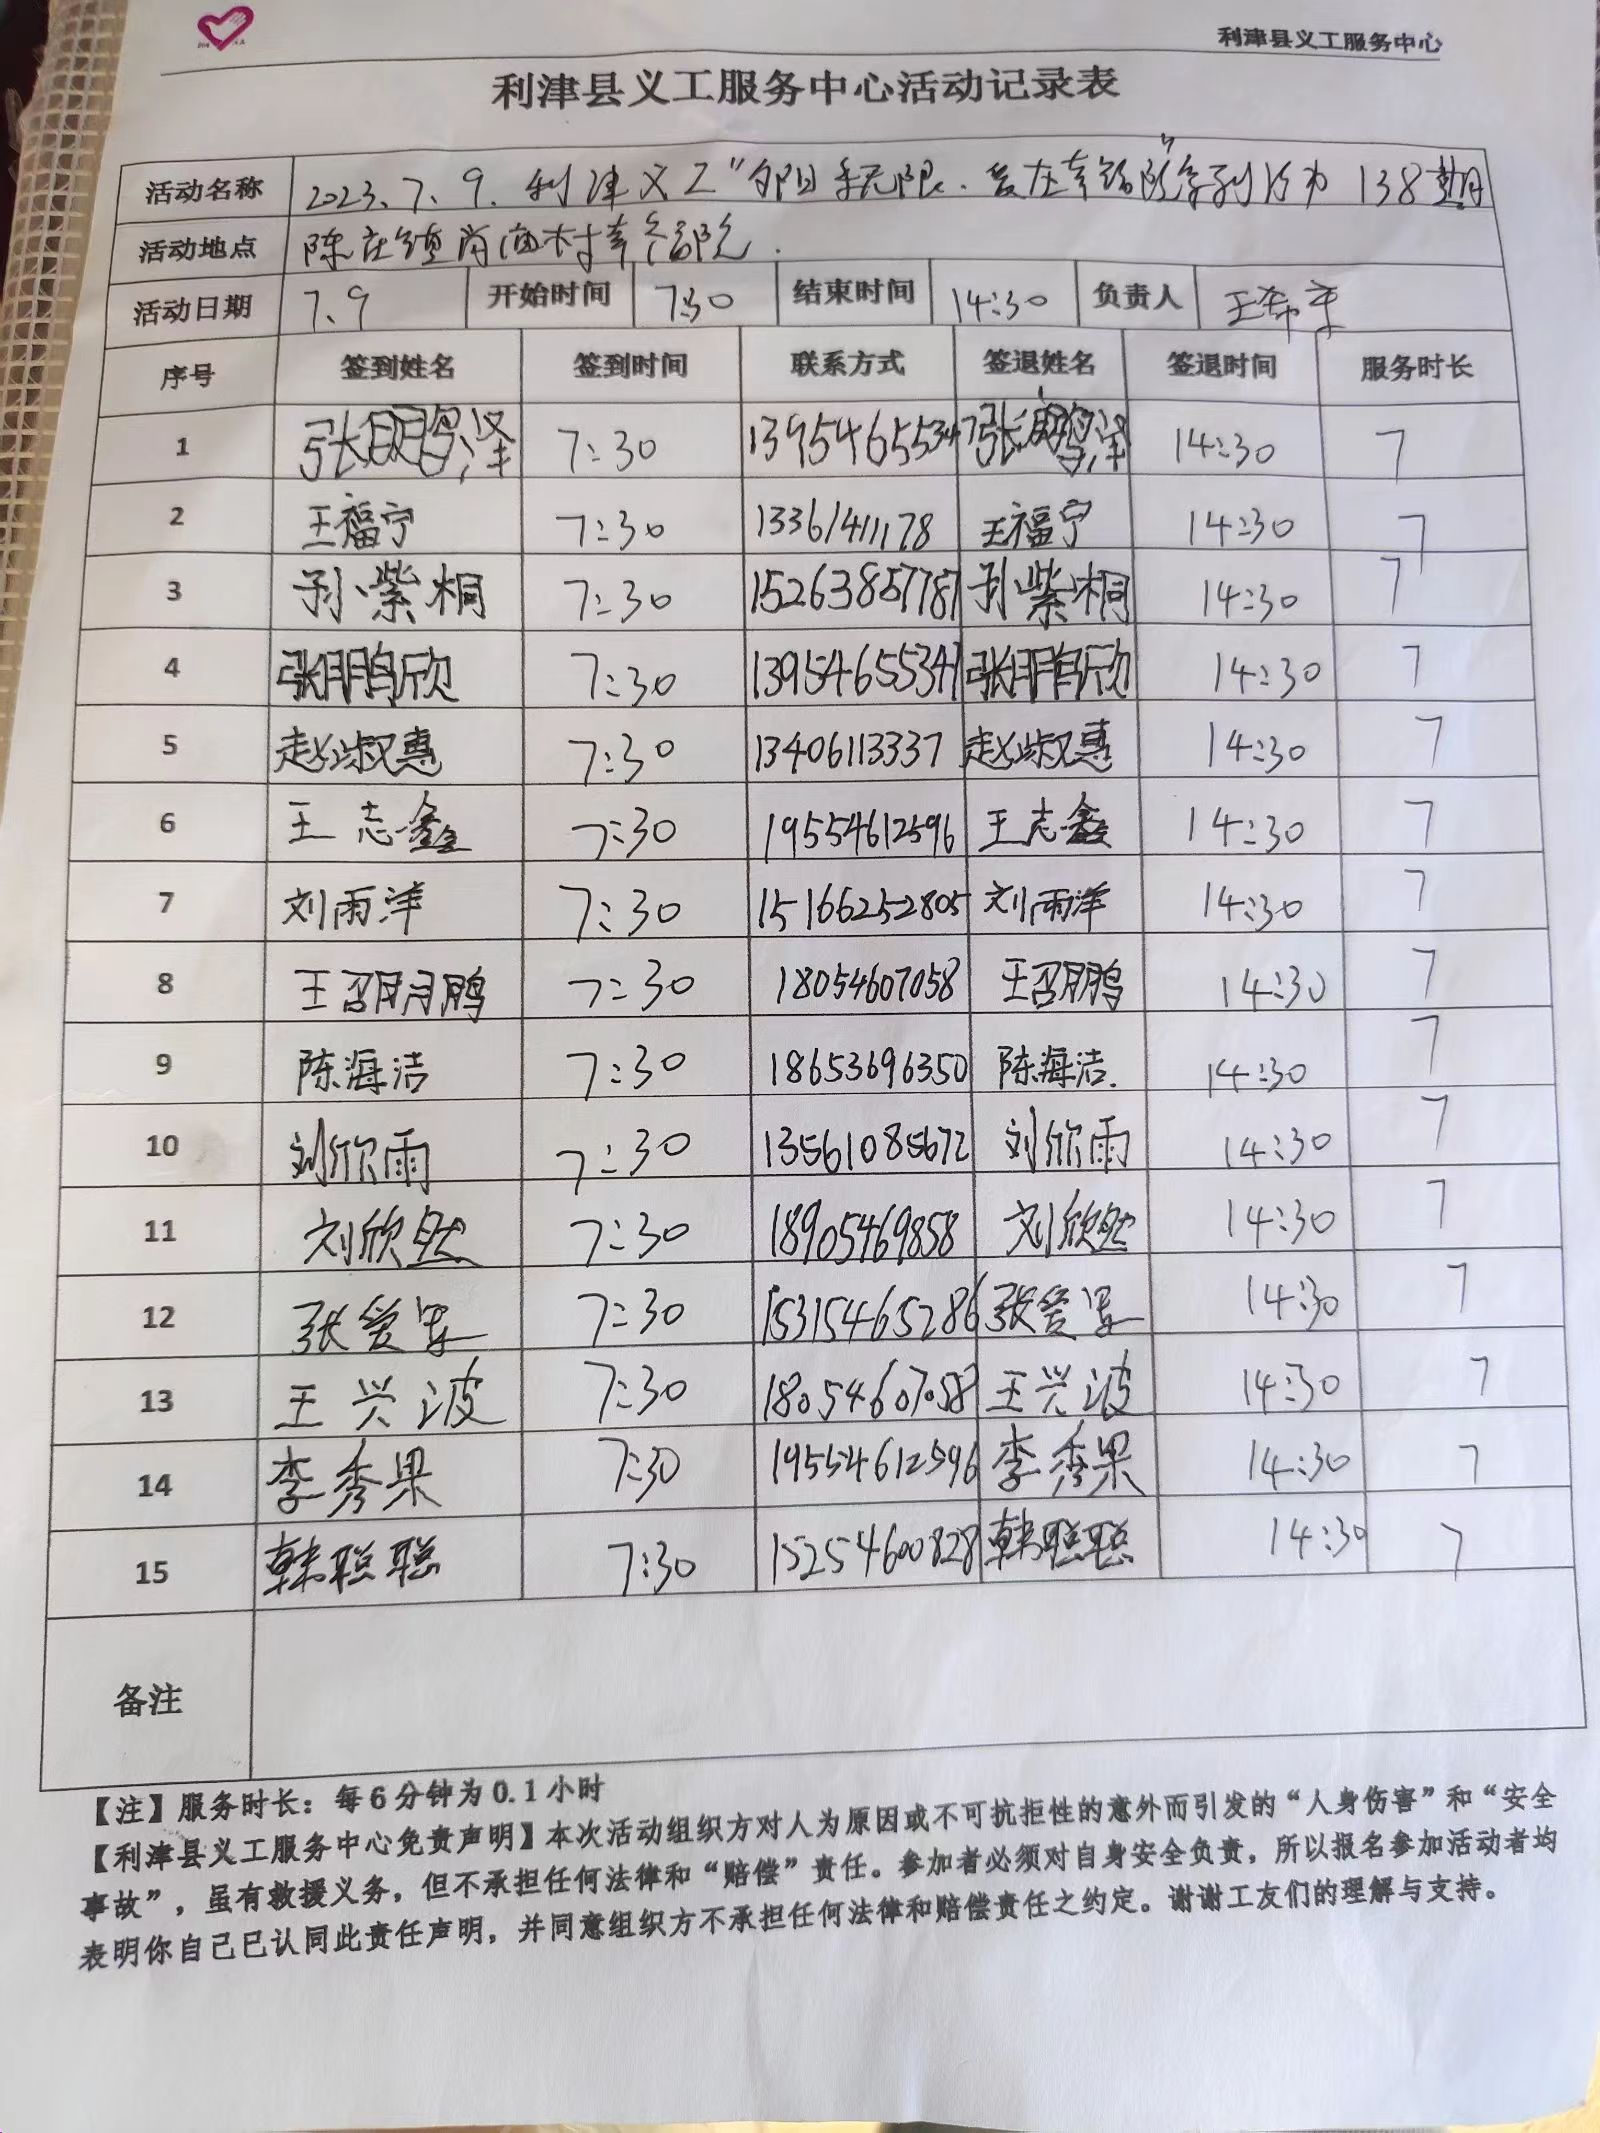 利津县义工服务中心
利津县义工服务中心活动记录表
活动名称 2023.7.9.利津义工"夕阳无限.爱在幸福院"系列活动138期
活动地点 陈庄镇 村幸福院.
活动日期 7.9 开始时间 7:30 结束时间 14:30 负责人 王希
序号 签到姓名 签到时间 联系方式 签退姓名 签退时间 服务时长
1 张鹏泽 7:30 13954655347 张鹏泽 14:30 7
2 王福宁 7:30 13361411178 王福宁 14:30 7
3 孙紫桐 7:30 15263857787 孙紫桐 14:30 7
4 张鹏欣 7:30 13954655347 张鹏欣 14:30 7
5 赵淑惠 7:30 13406113337 赵淑惠 14:30 7
6 王志鑫 7:30 19554612596 王志鑫 14:30 7
7 刘雨洋 7:30 15166252805 刘雨洋 14:30 7
8 王召鹏 7:30 18054607058 王召鹏 14:30 7
9 陈海洁 7:30 18653696350 陈海洁. 14:30 7
10 刘欣雨 7:30 13561085672 刘欣雨 14:30 7
11 刘欣然 7:30 18905469858 刘欣然 14:30 7
12 张爱 7:30 15315465286 张爱 14:30 7
13 王兴波 7:30 18054607058 王兴波 14:30 7
14 李秀果 7:30 19554612596 李秀果 14:30 7
15 韩聪聪 7:30 15254600828 韩聪聪 14:30 7
备注
【注】服务时长：每6分钟为0.1小时
【利津县义工服务中心免责声明】本次活动组织方对人为原因或不可抗拒性的意外而引发的“人身伤害”和“安全
事故”，虽有救援义务，但不承担任何法律和“赔偿”责任。参加者必须对自身安全负责，所以报名参加活动者均
表明你自己已认同此责任声明，并同意组织方不承担任何法律和赔偿责任之约定。谢谢工友们的理解与支持。